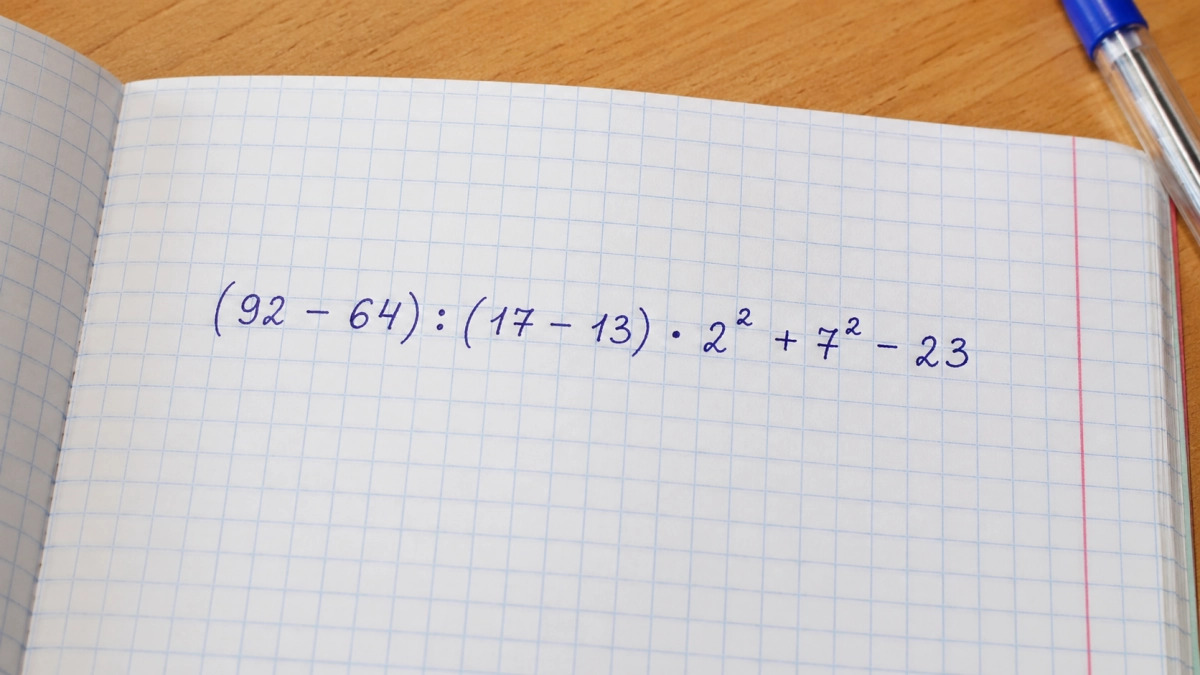 (92 - 64) : (17 - 13) · 2² + 7² - 23